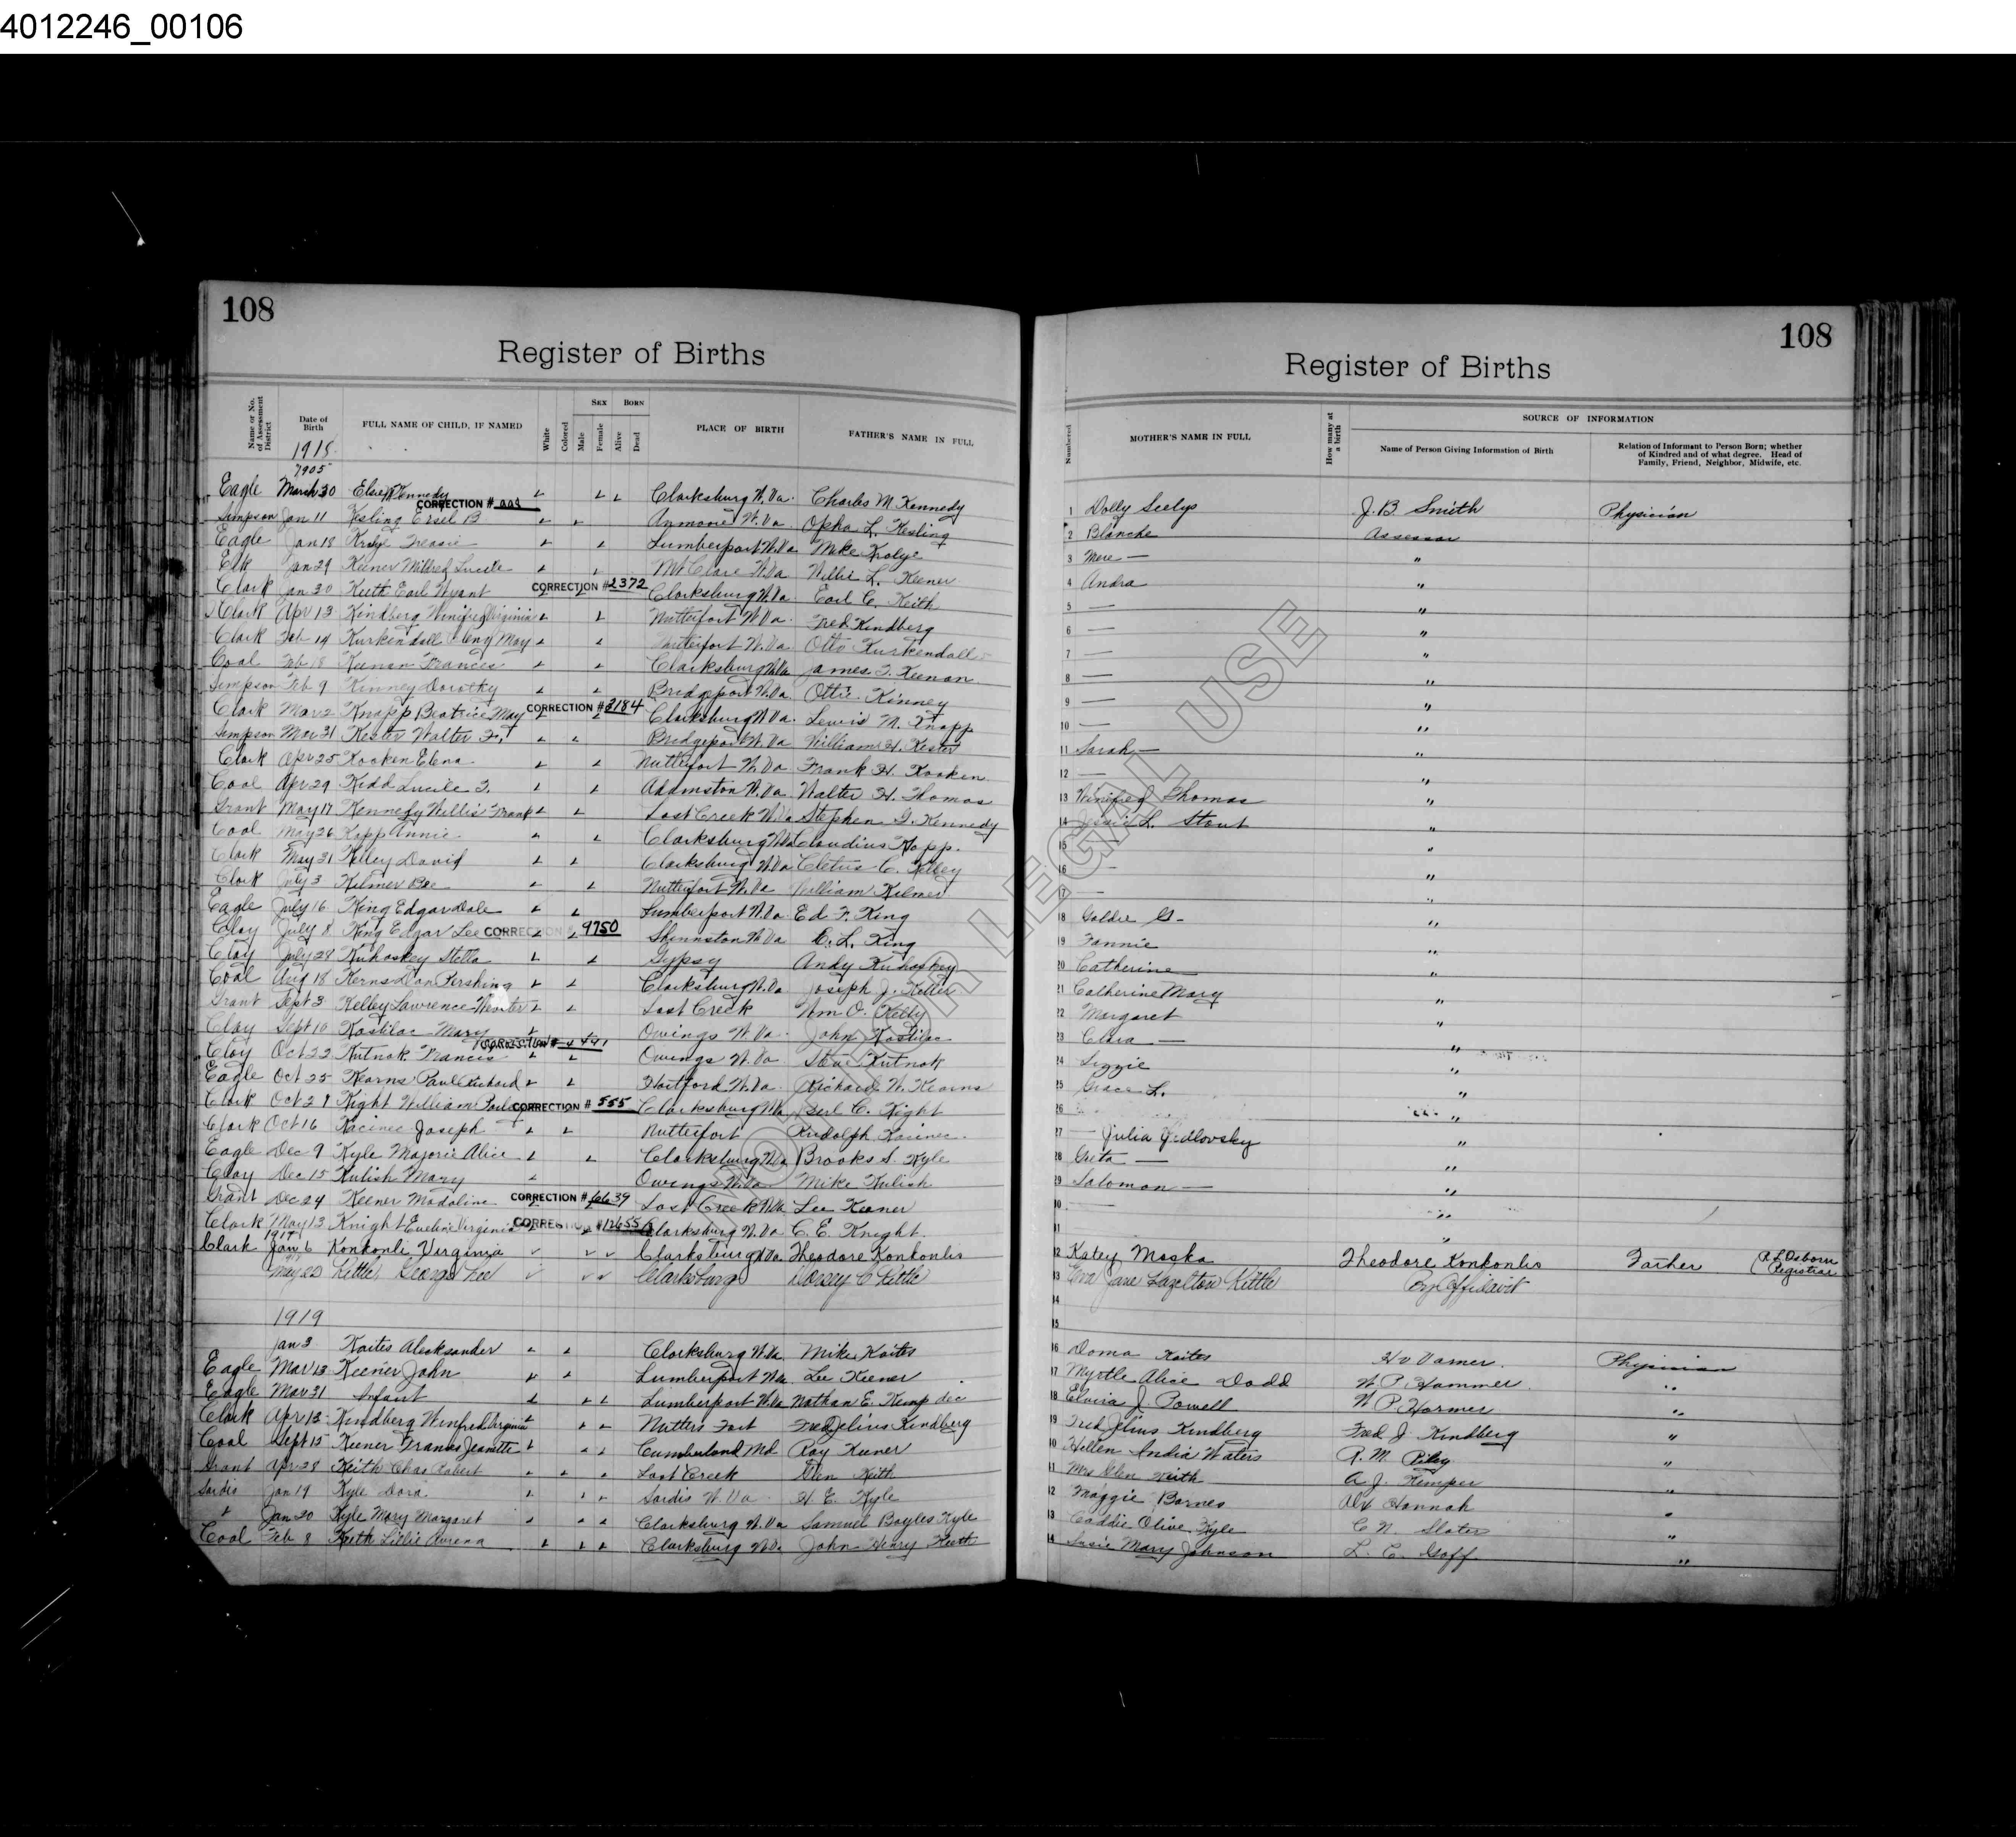 4012246_00106
108
Register of Births
Name or No. of Assessment District
Date of Birth
FULL NAME OF CHILD, IF NAMED
White
Colored
SEX
Male
Female
BORN
Alive
Dead
PLACE OF BIRTH
FATHER'S NAME IN FULL
1918
1905
Eagle March 30 Elsie Kennedy Clarksburg W.Va. Charles M Kennedy
CORRECTION #
Simpson Jan 11 Kesling Ersel B Anmoore W.Va. Opha L. Kesling
Eagle Jan 18 Treasie Lumberport W.Va Mike
Elk Jan 29 Keener Mildred Lucile Mt Clare W.Va Willie L. Keener
Clark Jan 30 Keith Earl Wyant CORRECTION #2372 Clarksburg W.Va. Earl C. Keith
Clark Apr 13 Kindberg Winifred Virginia Nutterfort W.Va. Fred Kindberg
Clark Feb 14 Kurkendall May Nutterfort W.Va. Otto Kurkendall
Coal Feb 18 Keenan Frances Clarksburg W.Va James T. Keenan
Simpson Feb 9 Kinney Dorothy Bridgeport W.Va. Ottie Kinney
Clark Mar 2 Knapp Beatrice May CORRECTION #3184 Clarksburg W.Va. Lewis M. Knapp
Simpson Mar 31 Kester Walter F. Bridgeport W.Va William H. Kester
Clark Apr 25 Kooken Elena Nutterfort W.Va Frank H. Kooken
Coal Apr 29 Kidd Lucile T. Adamston W.Va Walter H. Thomas
Grant May 17 Kennedy Willis Frank Lost Creek W.Va Stephen G. Kennedy
Coal May 26 Kapp Annie Clarksburg W.Va Claudius Kapp.
Clark May 31 Kelley David Clarksburg W.Va Cletus C. Kelley
Clark July 3 Kilmer Nutterfort W.Va William Kilmer
Eagle July 16 King Edgar Dale Lumberport W.Va. Ed F. King
Clay July 8 King Edgar Lee CORRECTION 9750 Shinnston W.Va E. L. King
Clay July 28 Kuhaskey Stella Gypsy Andy Kuhoskey
Coal Aug 18 Kerns Don Pershing Clarksburg W.Va. Joseph J. Keller
Grant Sept 3 Kelley Lawrence Lost Creek Wm O. Kelly
Clay Sept 10 Kostilac Mary Owings W.Va. John Kostilac
CORRECTION #
Clay Oct 22 Kutnak Francis Owings W.Va. Kutnak
Eagle Oct 25 Kearns Paul Richard Hartford W.Va. Richard W. Kearns
Clark Oct 29 Kight William CORRECTION # 555 Clarksburg W.Va C. Kight
Clark Oct 16 Kacinec Joseph Nutterfort Rudolph Kacinec
Eagle Dec 9 Kyle Majorie Alice Clarksburg W.Va Brooks S. Kyle
Clay Dec 15 Kulish Mary Owings W.Va Mike Kulish
Grant Dec 24 Keener Madaline CORRECTION #6639 Lost Creek W.Va Lee Keener
Clark May 13 Knight Eveline Virginia CORRECTION #12655 Clarksburg W.Va C. E. Knight
Clark Jan 6 Konkonli Virginia Clarksburg W.Va. Theodore Konkonlis
May 23 Kittle, George Lee Clarksburg Dorsey C Kittle
1919
Jan 3 Koites Alecksander Clarksburg W.Va. Mike Koites
Eagle Mar 13 Keener John Lumberport W.Va. Lee Keener
Eagle Mar 31 Infant Lumberport W.Va Nathan E. Kemp dec
Clark Apr 13 Kindberg Winfred Virginia Nutters Fort Fred Jelius Kindberg
Coal Sept 15 Keener Frances Jeanette Cumberland Md. Ray Keener
Grant Apr 28 Keith Chas Robert Lost Creek Glen Keith
Sardis Jan 19 Kyle Dora Sardis W.Va H. E. Kyle
Jan 20 Kyle Mary Margaret Clarksburg W.Va Samuel Boyles Kyle
Coal Feb 8 Keith Lillie Aurena Clarksburg W.Va John Henry Keith
108
Register of Births
Numbered
MOTHER'S NAME IN FULL
How many at a birth
SOURCE OF INFORMATION
Name of Person Giving Information of Birth
Relation of Informant to Person Born; whether
of Kindred and of what degree. Head of
Family, Friend, Neighbor, Midwife, etc.
1 Dolly Seelys J. B. Smith Physician
2 Blanche Assessor
3 — "
4 Andra "
5 — "
6 — "
7 — "
8 — "
9 — "
10 — "
11 Sarah — "
12 — "
13 Winifred Thomas "
14 Jessie L. Stout "
15 "
16 — "
17 — "
18 Goldie G- "
19 Fannie "
20 Catherine "
21 Catherine Mary "
22 Margaret "
23 Clara — "
24 Lizzie "
25 Grace L. "
26 "
27 Julia "
28 Greta — "
29 Salomon — "
10 — "
11 "
12 Katey Moska Theodore Konkonlis Father (R L Osborn Registrar
13 Jane Kittle By Affidavit
14
15
16 Doma Koites H V Varner. Physician
17 Myrtle Alice Dodd W. P. Hammer "
18 Elvira J Powell W P Harmer "
19 Fred Jelius Kindberg Fred J. Kindberg "
10 Hellen India Waters R. M. "
11 Mrs Glen Keith A. J. Kemper "
12 Maggie Barnes Alx Hannah "
13 Caddie Olive Kyle C. N. Slater "
14 Susie Mary Johnson L. C. Goff "
NOT FOR LEGAL USE